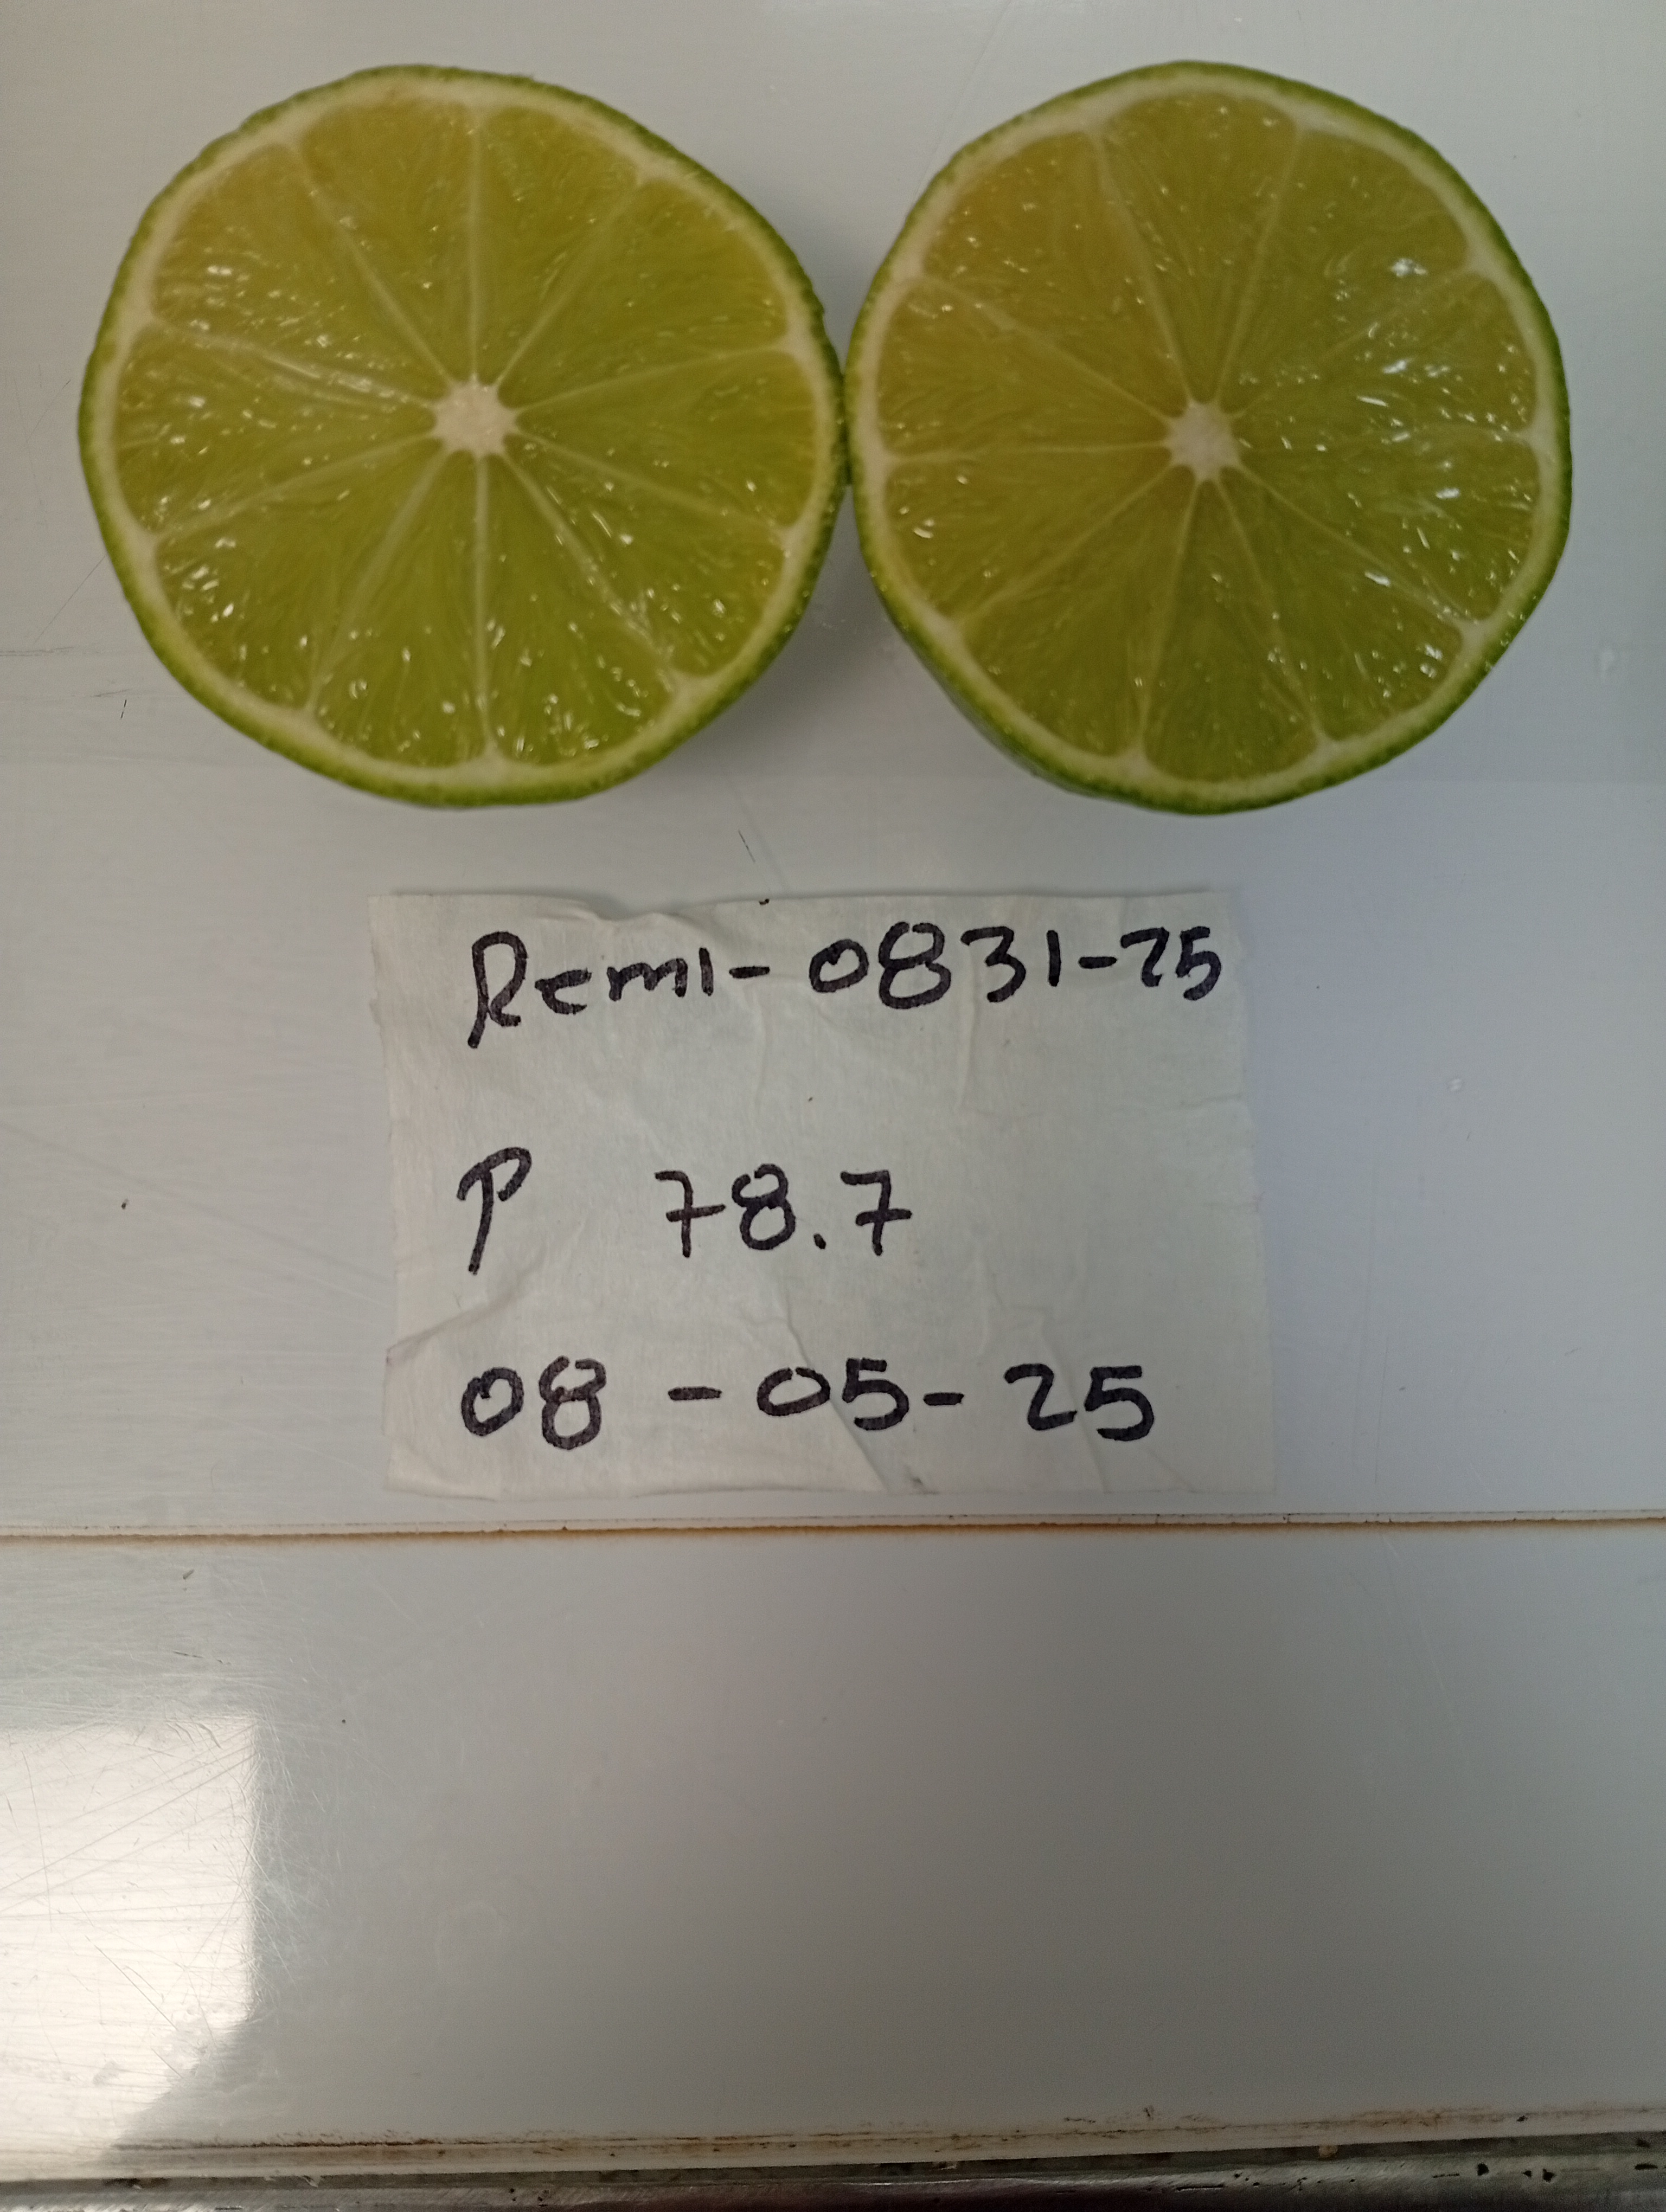 Remi-0831-25
P 78.7
08-05-25